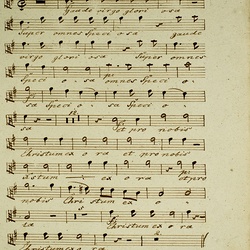 Gaude virgo glori osa
Super omnes speci osa gaude
virgo glori osa Super omnes
Speci o sa omnes Speci o
sa Speci o Speci o
sa et pro nobis
Christum ex o ra et pro nobis
istum ex o ra et pro
nobis Chri stum ex o
ra Christum ex o ra
Christum ex o ra